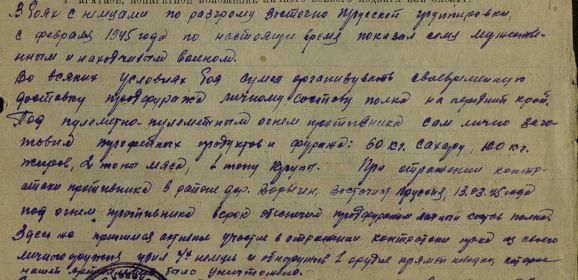 В боях с немцами по разгрому Восточно Прусской группировки,
с февраля 1945 года по настоящее время показал себя мужестве-
нным и находчивым воином.
Во всяких условиях боя сумел организувать своевременную
доставку продфуража личному составу полка на передний край.
Под пулеметно-пулеметным огнем противника сам лично заго-
товил трофейных продуктов и фуража: 60 кг. сахару, 120 кг.
жиров, 2 тоны мяса, тону крупы. При отражении контр-
атаки противника в районе дер. Восточная Пруссия, 13.03.45 года
под огнем противника полка.
Здесь же принимая активное участие в отражении контратаки из своего
личного оружия убил 4х немцев и обнаружил 2 орудия прямой наводки, которые
нашей было уничтожено.